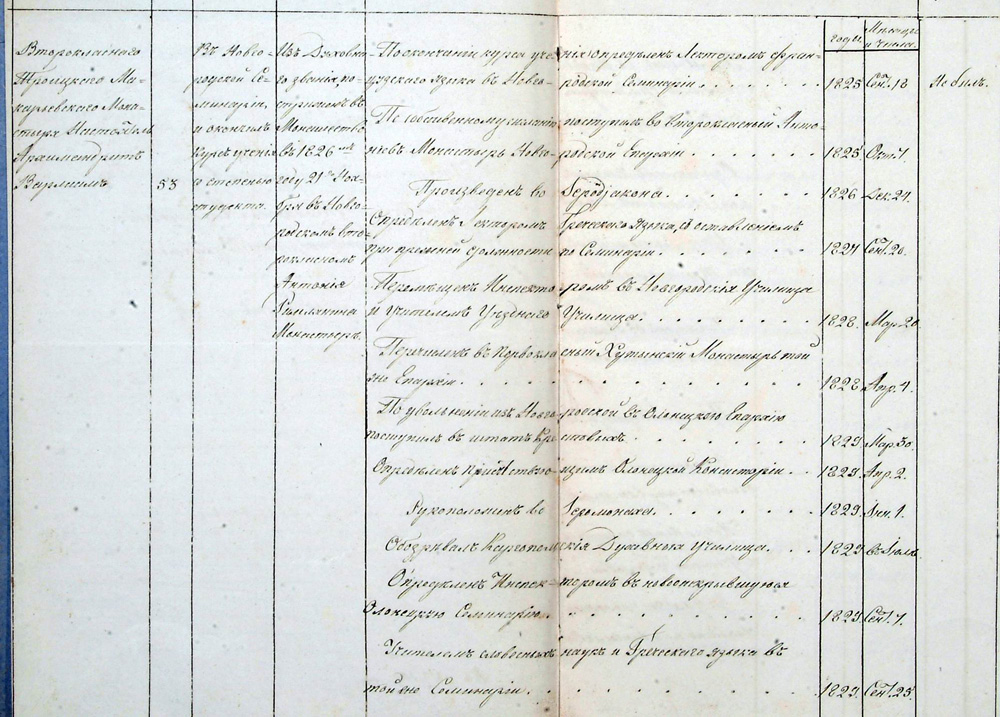 годы
Мѣсяцы
и числа.
Второкласнаго
Троицкаго Ма-
карьевскаго Мона-
стыря Настоятель
Архимандритъ
Варлаамъ
53
Въ Новго-
родской Се-
минаріи,
и окончилъ
курсъ ученія
со степенью
студента.
Изъ Духовна-
го званія, по-
стриженъ въ
Монашество
въ 1826мъ
году 21го Ноя-
бря въ Новго-
родскомъ вто-
рокласномъ
Антонія
Римлянина
Монастырѣ.
По окончаніи курса ученія опредѣленъ Лекторомъ фран-
цузскаго языка въ Новго-родской Семинаріи . . . . . . 1825 Сент. 18 Не былъ.
По собственному желанію поступилъ во второкласный Анто-
ніевъ Монастырь Новго-родской Епархіи . . . . . . 1825 Окт. 7.
Произведенъ во Іеродіакона . . . . . . 1826 Дек. 24.
Опредѣленъ Лекторомъ Греческаго языка, съ оставленіемъ
при прежней должности по Семинаріи . . . . . . 1827 Сент. 20.
Перемѣщенъ Инспекто-ромъ въ Новгородскія Училища
и учителемъ Уѣзднаго Училища . . . . . . 1828. Мар. 20.
Перечисленъ въ Первокла-сный Хутынскій Монастырь той
же Епархіи . . . . . . 1828 Апр. 4.
По увольненіи изъ Новго-родской въ Олонецкую Епархію
поступилъ въ штатъ Кре-стовыхъ . . . . . . 1829 Мар. 30.
Опредѣленъ присутствую-щимъ Олонецкой Консисторіи . . 1829. Апр. 2.
Рукоположенъ во Іеромонаха . . . . . . 1829.
Обозрѣвалъ Каргополь-скія Духовныя Училища . . . 1829 въ Іюлѣ.
Опредѣленъ Инспек-торомъ въ новооткрывшуюся
Олонецкую Семинарію . . . . . . 1829. Сент. 7.
Учителемъ словесныхъ наукъ и Греческаго языка въ
той же Семинаріи . . . . . . 1829. Сент. 25.